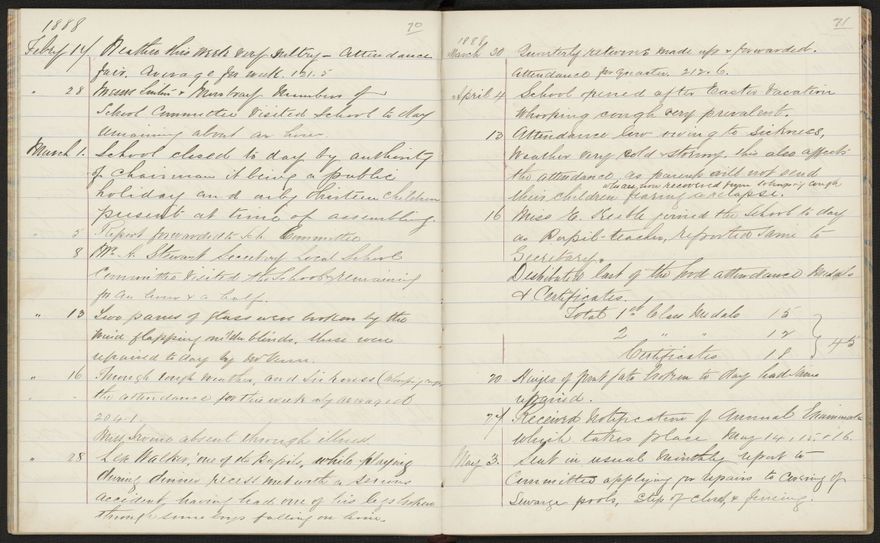 1888
70
Feb'y 14 Weather this week very sultry - Attendance
fair. Average for week 191.5
" 28 Messrs and Members of
School Committee visited School to day
remaining about an hour
March 1. School closed to day by authority
of Chairman it being a public
holiday and only thirteen children
present at time of assembling.
" 5 Report forwarded to Sch. Committee
8 Mr. A. Stewart Secretary Local School
Committee visited the School remaining
for an hour & a half.
" 13 Two panes of glass were broken by the
wind flapping with the blinds, these were
repaired to day by Mr
" 16 Through rough weather, and sickness (whooping cough
the attendance for this week only averaged
204.1
Miss Irvine absent through illness.
" 28 Walker, one of the pupils, while playing
during dinner recess met with a serious
accident, having had one of his legs broken
through some logs falling on him.
71
1888
March 30 Quarterly returns made up & forwarded.
Attendance for quarter. 212.6.
April 4. School opened after Easter Vacation
Whooping cough very prevalent.
13 Attendance low owing to sickness,
Weather very cold & stormy, this also affects
the attendance, as parents will not send
who are now recovered from whooping cough
their children fearing a relapse.
16 Miss E. Keeble joined the School to day
as Pupil-teacher, reported same to
Secretary.
Distributed last of the good attendance Medals
& Certificates.
Total 1st Class Medals 15
2 " " 12
Certificates 18 } 45
20 Hinges of front gate broken to day had same
repaired.
24 Received Notification of Annual Examination
which takes place May 14, 15 & 16.
May 3. Sent in usual Monthly report to
Committee applying for repairs to covering of
Sewage pools, Step of Closet, & fencing.